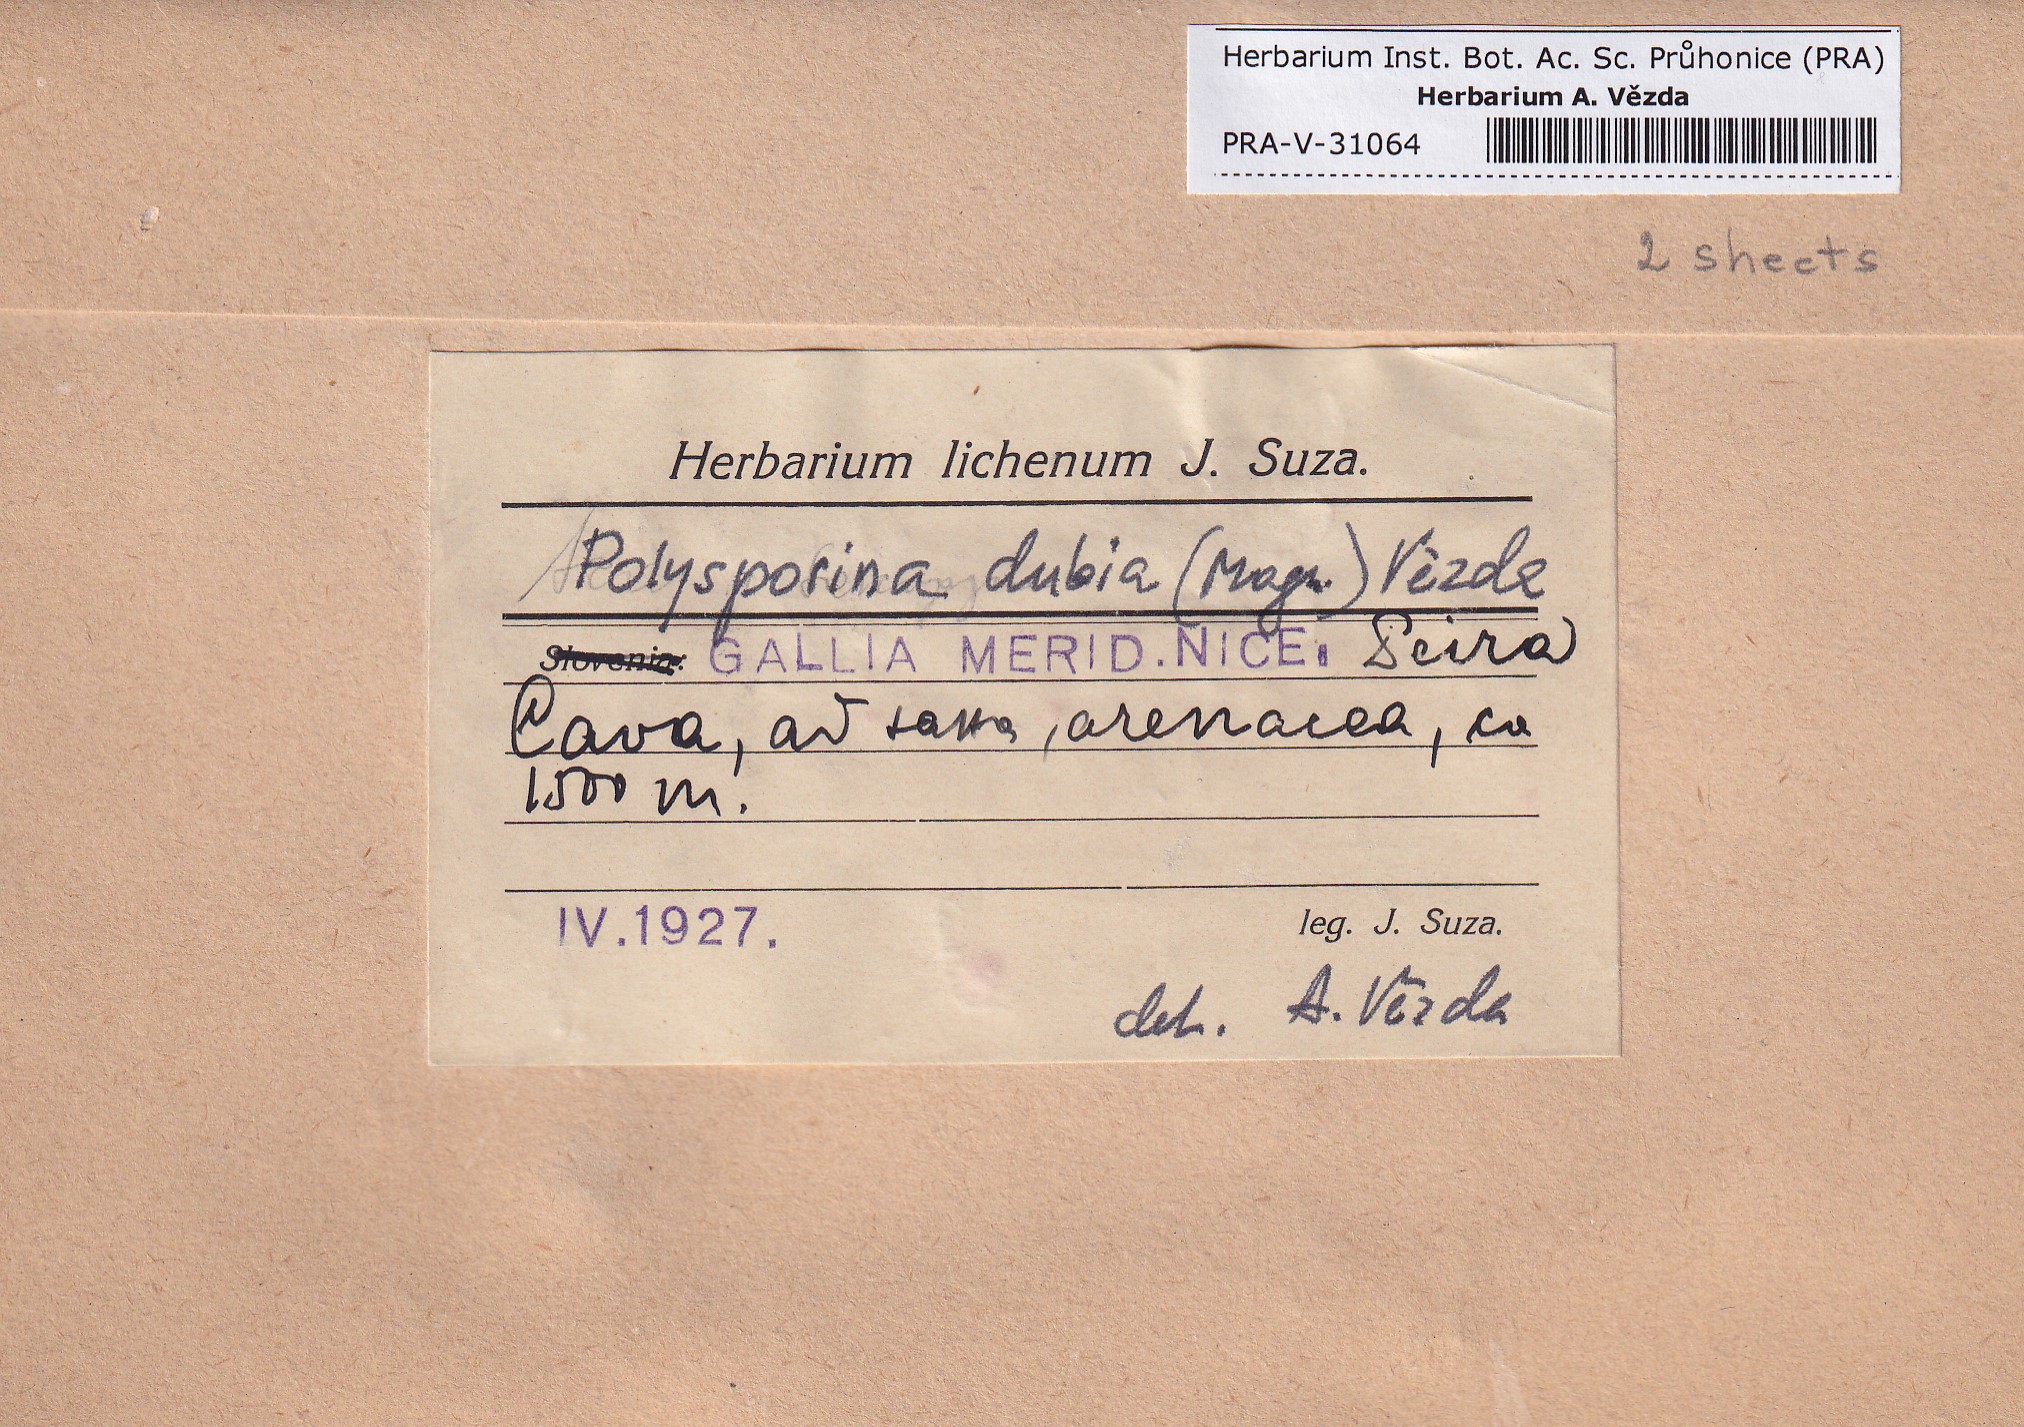 Herbarium Inst. Bot. Ac. Sc. Průhonice (PRA)
Herbarium A. Vězda
PRA-V-31064
2 sheets
Herbarium lichenum J. Suza.
Polysporina dubia (Magn.) Vězda
Slovenia: GALLIA MERID. NICE: Peira
Cava, ad saxa, arenacea, ca
1500 m.
IV.1927.
leg. J. Suza.
det. A. Vězda